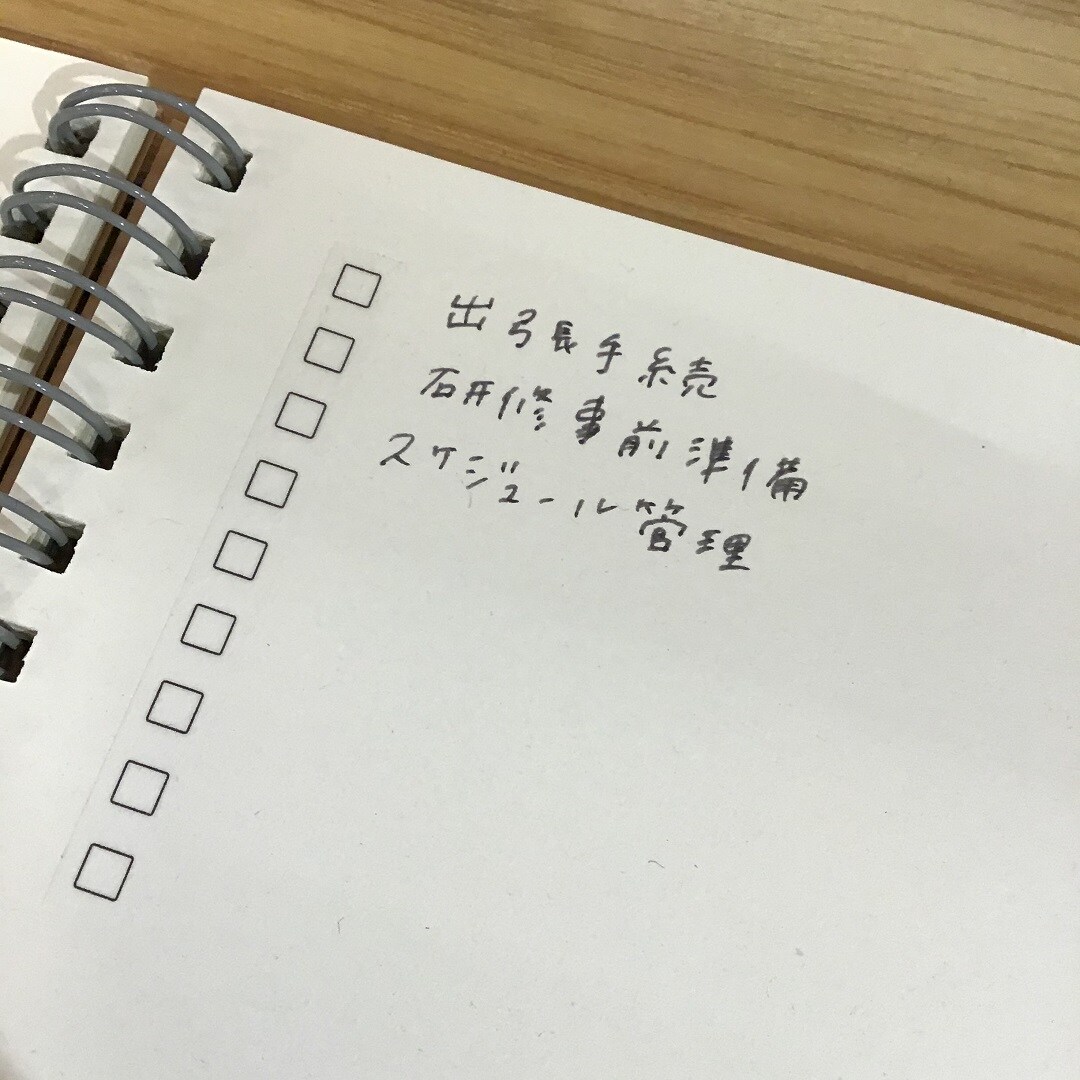 出張手続
研修事前準備
スケジュール管理